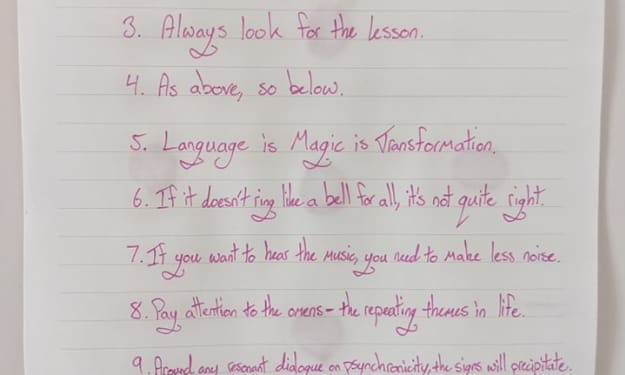 3. Always look for the lesson.
4. As above, so below.
5. Language is Magic is Transformation.
6. If it doesn't ring like a bell for all, it's not quite right.
7. If you want to hear the music, you need to make less noise.
8. Pay attention to the omens - the repeating themes in life.
9. Around any resonant dialogue on psynchronicity, the signs will precipitate.